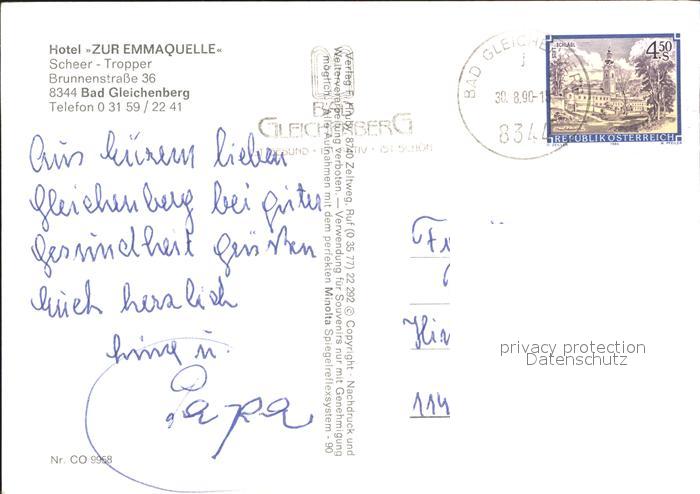 Hotel »ZUR EMMAQUELLE«
Scheer - Tropper
Brunnenstraße 36
8344 Bad Gleichenberg
Telefon 0 31 59 / 22 41
BAD
GLEICHENBERG
IST SCHÖN
BAD GLEICHENBERG
30. 8.90-1
8344
STIFT SCHLÄGL
4.50
S
REPUBLIK ÖSTERREICH
Aus Eurem lieben
Gleichenberg bei guter
Gesundheit grüssen
Euch herzlich
u.
Papa
Verlag F. Knollt, 8740 Zeltweg, Ruf (0 35 77) 22 292 © Copyright: Nachdruck und
Weiterverarbeitung verboten. — Verwendung für Souvenirs nur mit Genehmigung
möglich. Alle Aufnahmen mit dem perfekten Minolta Spiegelreflexsystem - 90
114
privacy protection
Datenschutz
Nr. CO 9958